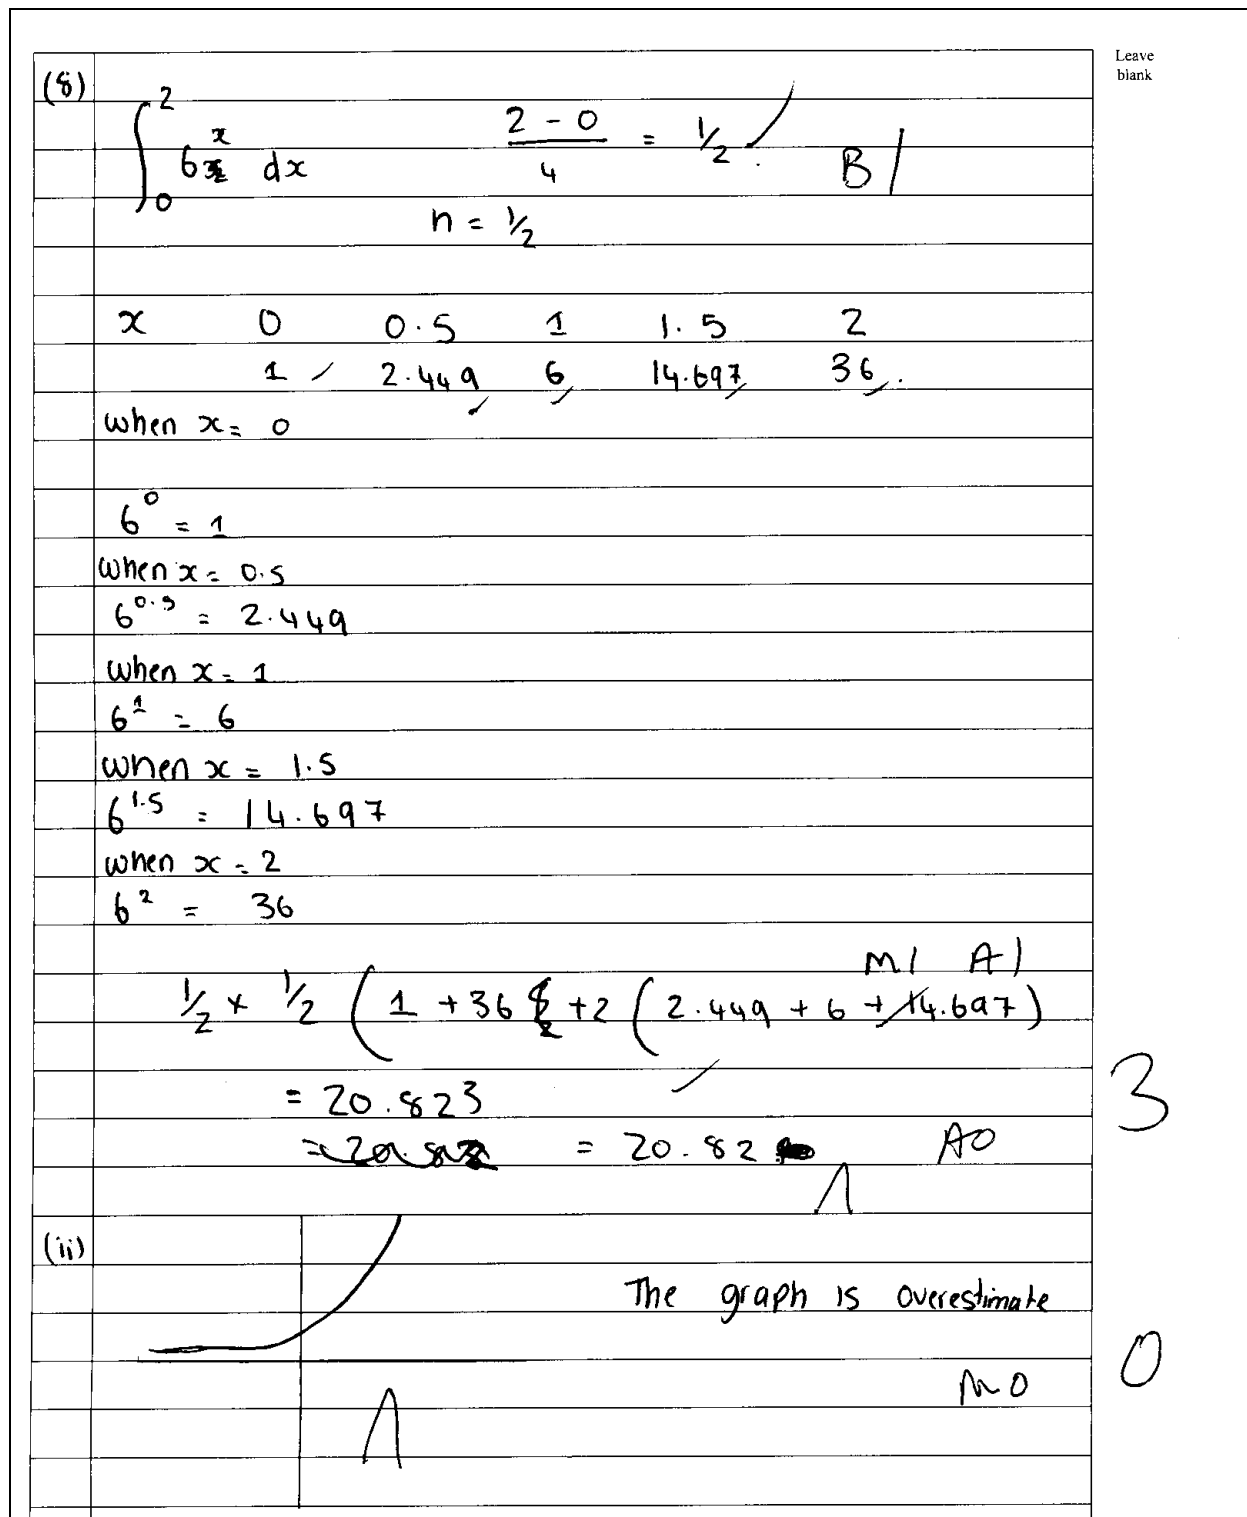 Leave
blank
(8)
∫₀² 6ˣ dx (2 - 0)/4 = 1/2 B1
h = 1/2
x 0 0.5 1 1.5 2
1 2.449 6 14.697 36
when x = 0
6⁰ = 1
when x = 0.5
6^0.5 = 2.449
when x = 1
6¹ = 6
when x = 1.5
6^1.5 = 14.697
when x = 2
6² = 36
M1 A1
1/2 × 1/2 ( 1 + 36 + 2 ( 2.449 + 6 + 14.697 )
= 20.823
3
= 20.82 A0
(ii)
The graph is overestimate
0
M0